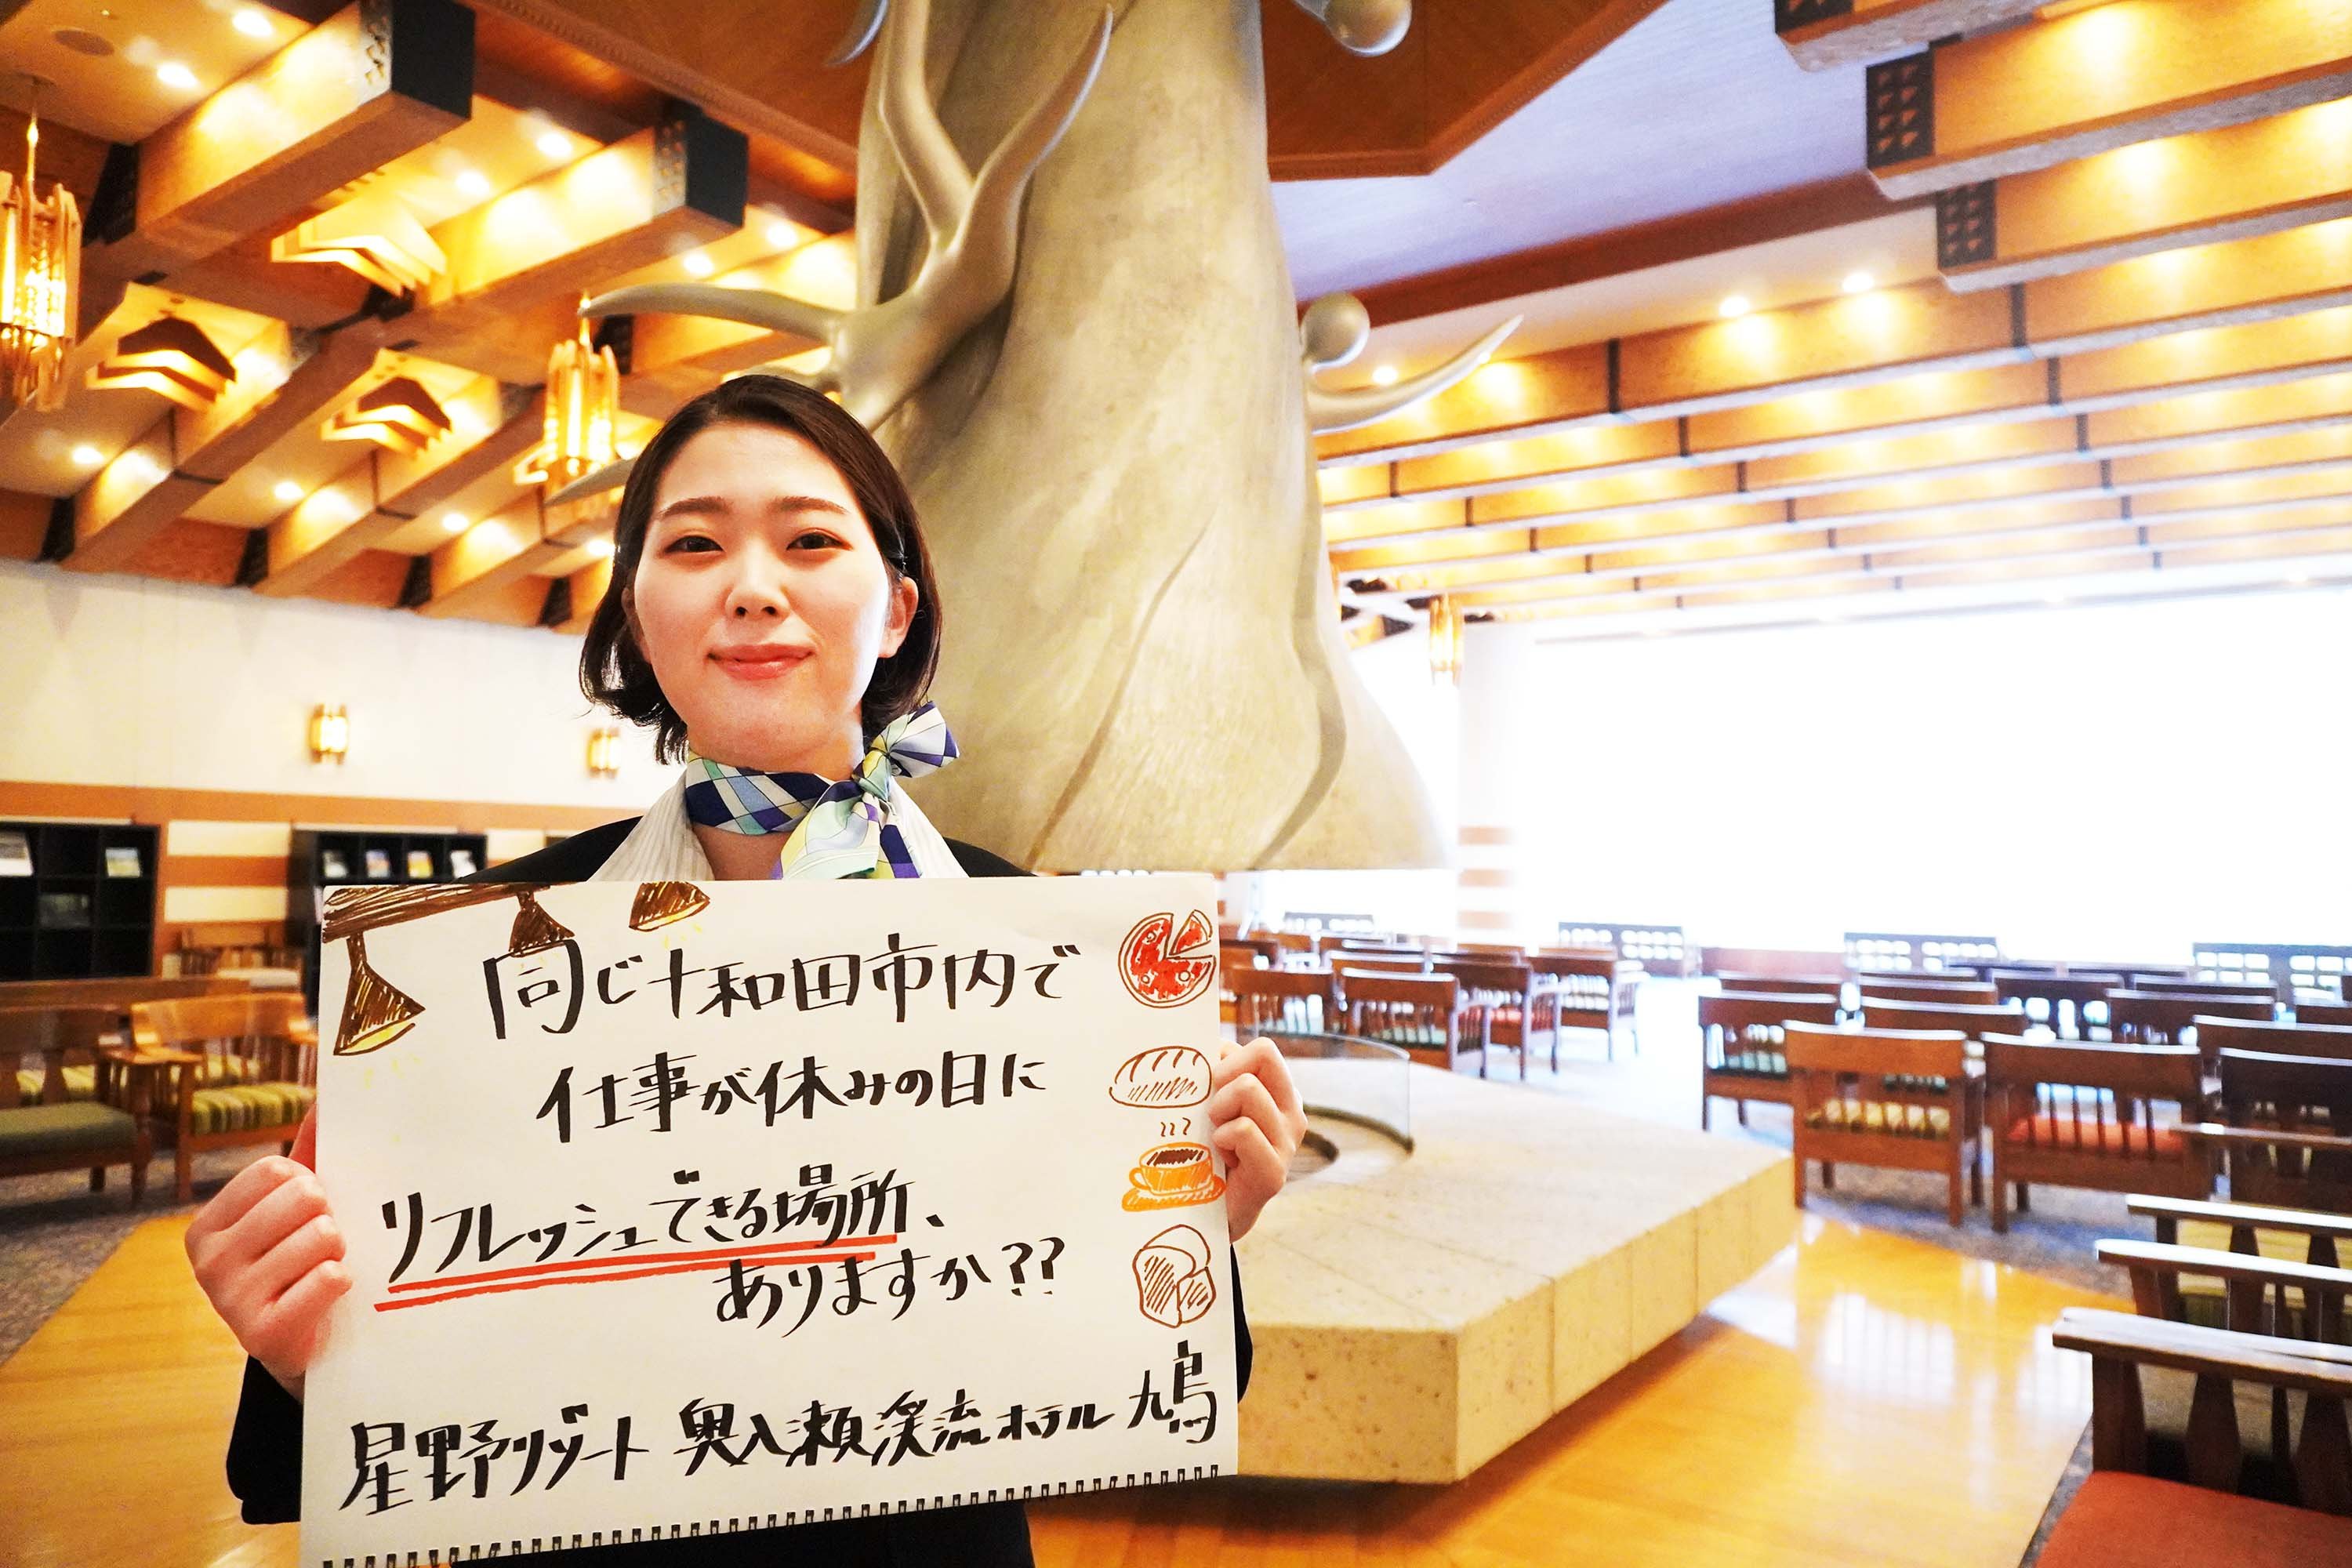 同じ十和田市内で
仕事が休みの日に
リフレッシュできる場所、
ありますか??
星野リゾート 奥入瀬渓流ホテル 鳩